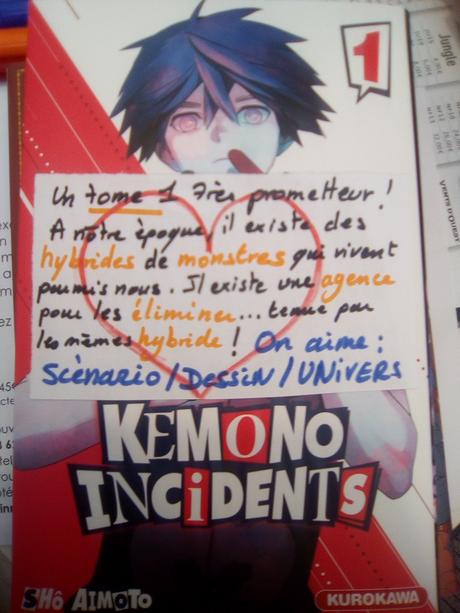 1
Un tome 1 très prometteur !
A notre époque, il existe des
hybrides de monstres qui vivent
parmis nous. Il existe une agence
pour les éliminer... tenue par
les mêmes hybride ! On aime :
Scénario/Dessin/UNIVERS
KEMONO
INCIDENTS
SHÔ AIMOTO
KUROKAWA
Jungle